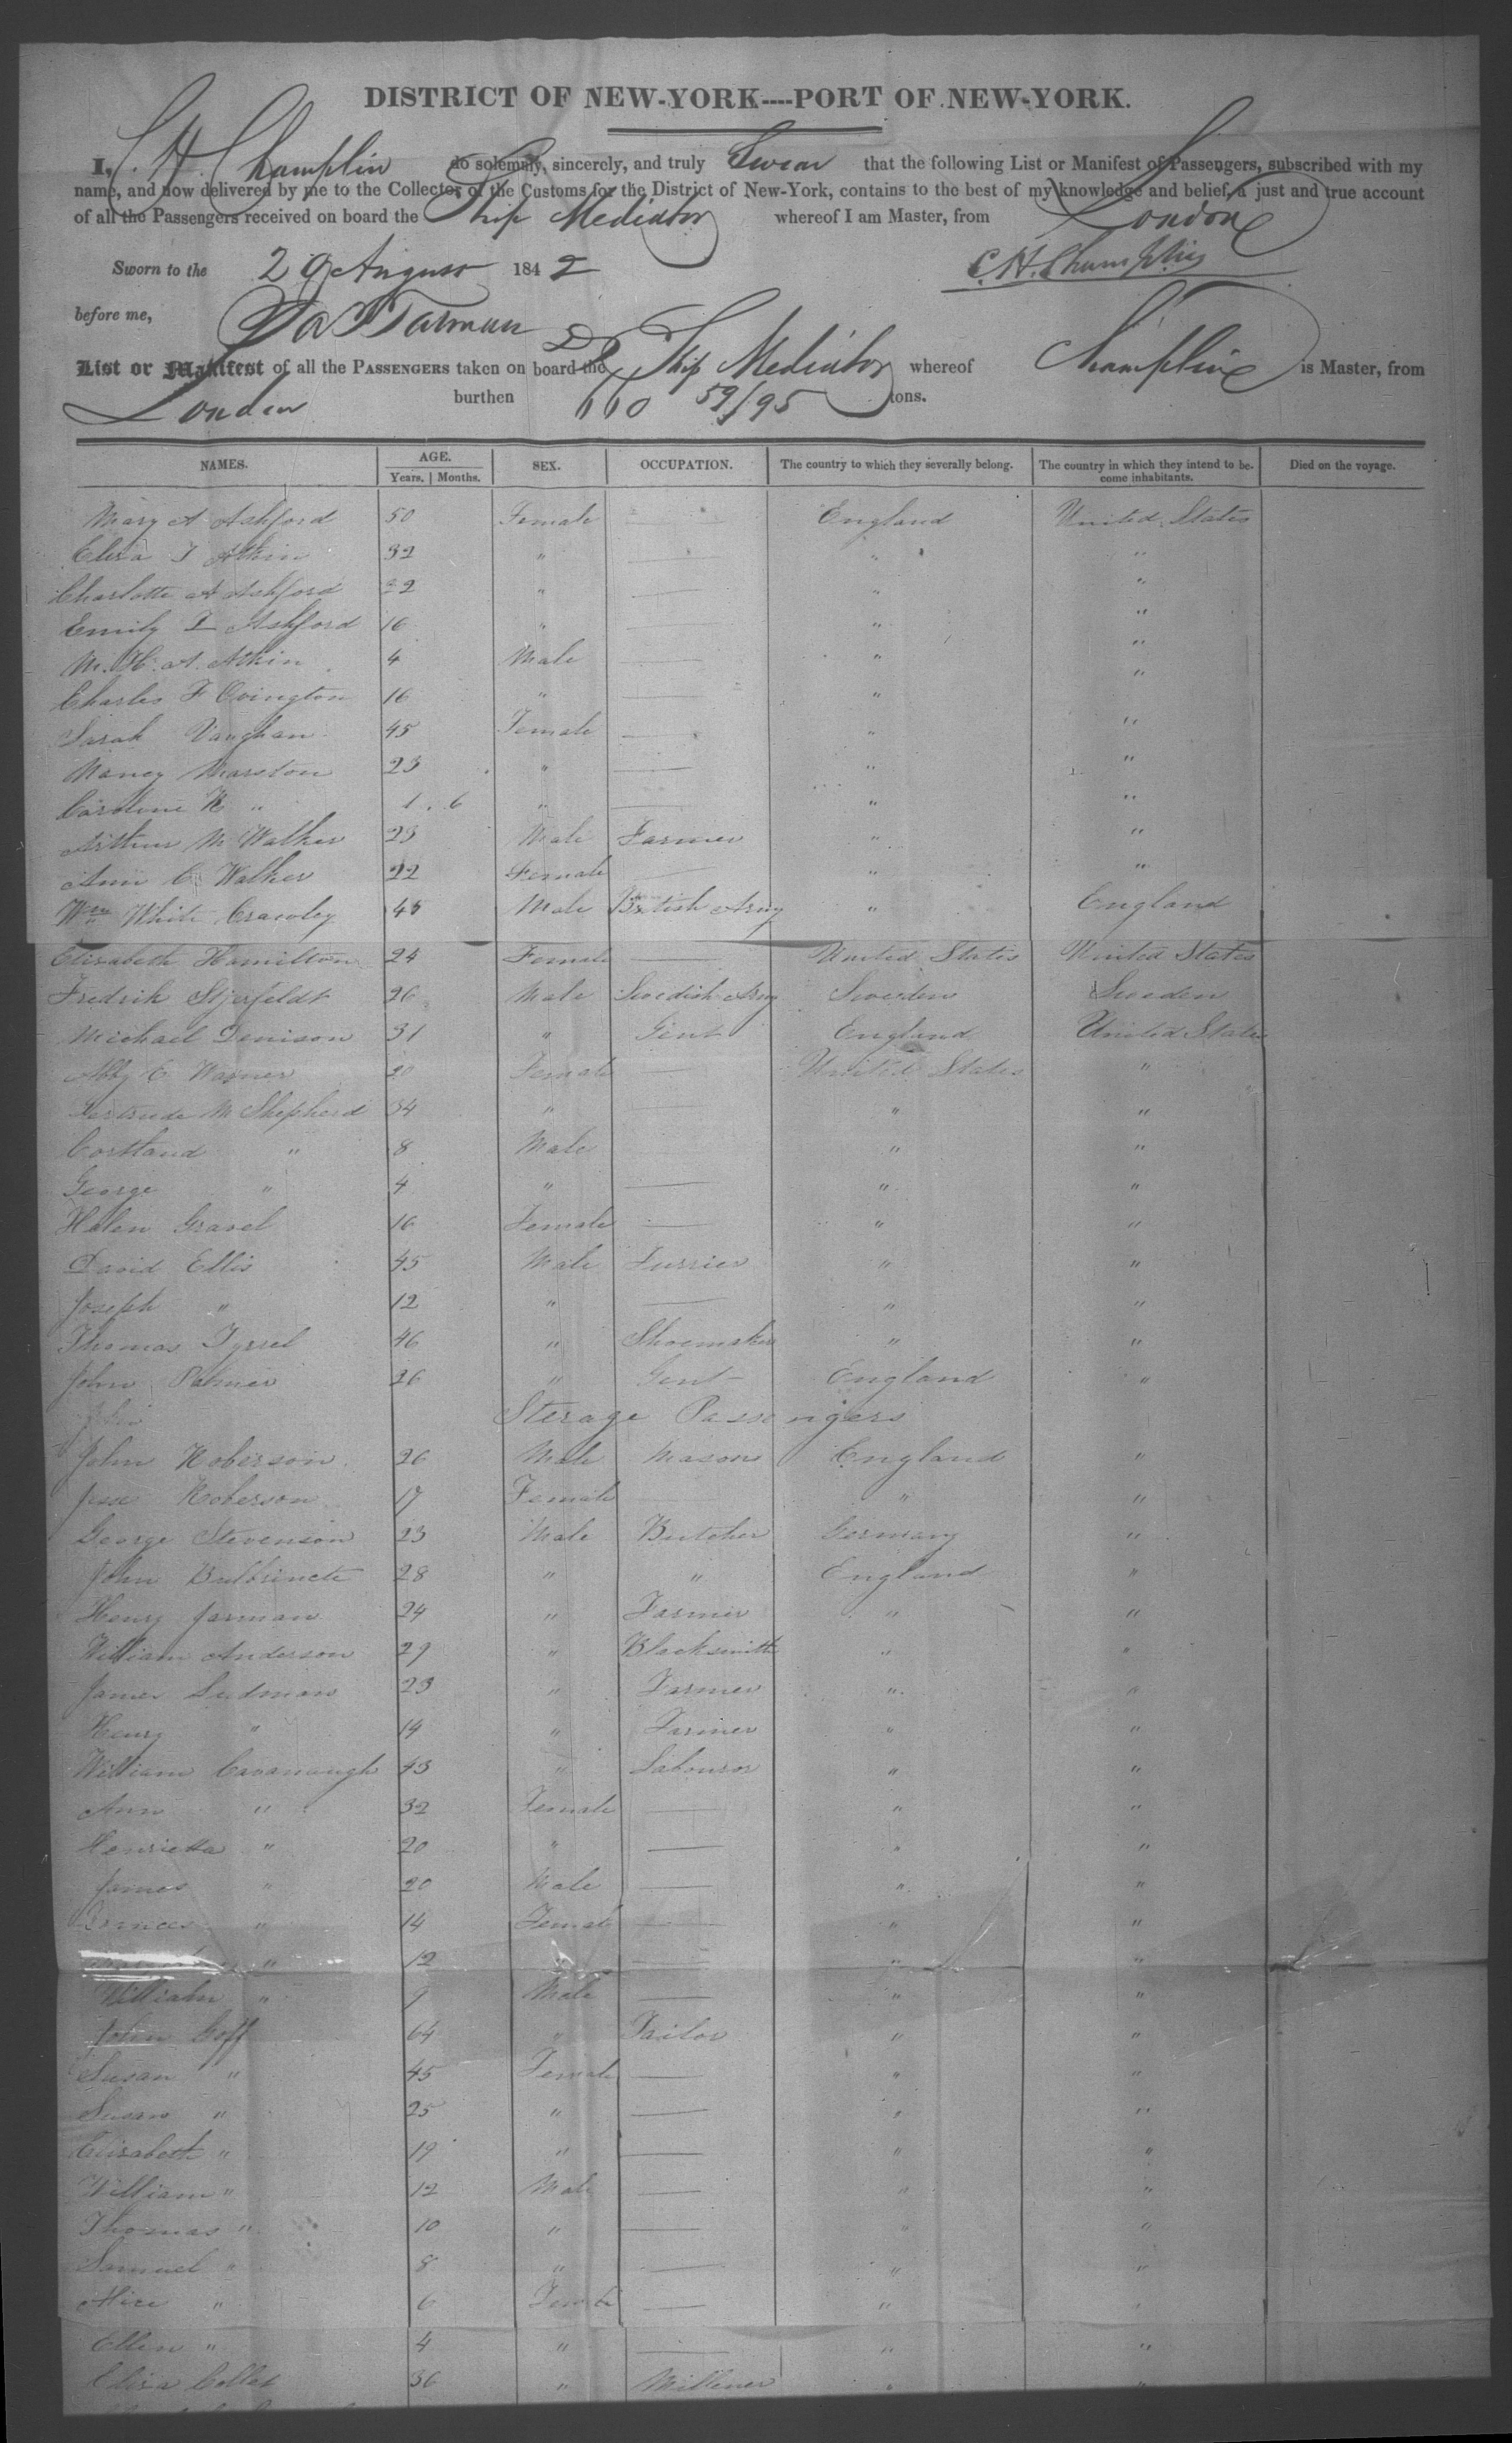 DISTRICT OF NEW-YORK----PORT OF NEW-YORK.
I, C. H. Champlin do solemnly, sincerely, and truly Swear that the following List or Manifest of Passengers, subscribed with my
name, and now delivered by me to the Collector of the Customs for the District of New-York, contains to the best of my knowledge and belief, a just and true account
of all the Passengers received on board the Ship Mediator whereof I am Master, from London
Sworn to the 29 August 1842 C. H. Champlin
before me,
List or Manifest of all the PASSENGERS taken on board the Ship Mediator whereof Champlin is Master, from
London burthen 660 59/95 tons.
NAMES. AGE. SEX. OCCUPATION. The country to which they severally belong. The country in which they intend to be- Died on the voyage.
Years. | Months. come inhabitants.
Mary A Ashford 50 Female — England United States
Eliza J Atkin 32 " — " "
Charlotte A Ashford 22 " — " "
Emily I Ashford 16 " — " "
M. H. A. Atkin 4 Male — " "
Charles F Ovington 16 " — " "
Sarah Vaughan 45 Female — " "
Nancy Marston 23 " — " "
Caroline K " 1 . 6 " — " "
Arthur M Walker 23 Male Farmer " "
Ann C Walker 22 Female — " "
Wm White Crawley 45 Male British Army " England
Elizabeth Hamilton 24 Female — United States United States
Fredrik Stjerfeldt 26 Male Swedish Army Sweden Sweden
Michael Denison 31 " Gent England United States
Abby C Warner 20 Female — United States "
Gertrude M Shepherd 34 " — " "
Cortland " 8 Male " "
George " 4 " — " "
Helen Gravel 16 Female — " "
David Ellis 45 Male Furrier " "
Joseph " 12 " — " "
Thomas Tyrrel 46 " Shoemaker " "
John Palmer 26 " Gent England "
John Sterage Passengers
John Roberson 26 Male Mason England "
Jesse Roberson 17 Female " "
George Stevenson 23 Male Butcher Germany "
John Bulbrincte 28 " " England "
Henry Jarman 24 " Farmer " "
William Anderson 29 " Blacksmith " "
James Ludman 23 " Farmer " "
Henry " 14 " Farmer " "
William Cavanaugh 43 " Labouror " "
Ann " 32 Female — " "
Henrietta " 20 " — " "
James " 20 Male — " "
Frances " 14 Female — " "
" 12 " — " "
William " 9 Male — " "
John Goff 64 " Tailor " "
Susan " 45 Female — " "
Susan " 25 " — " "
Elizabeth " 19 " — " "
William " 12 Male — " "
Thomas " 10 " — " "
Samuel " 8 " — " "
Alice " 6 Female — " "
Ellen " 4 " — " "
Eliza Collet 36 " Millener " "